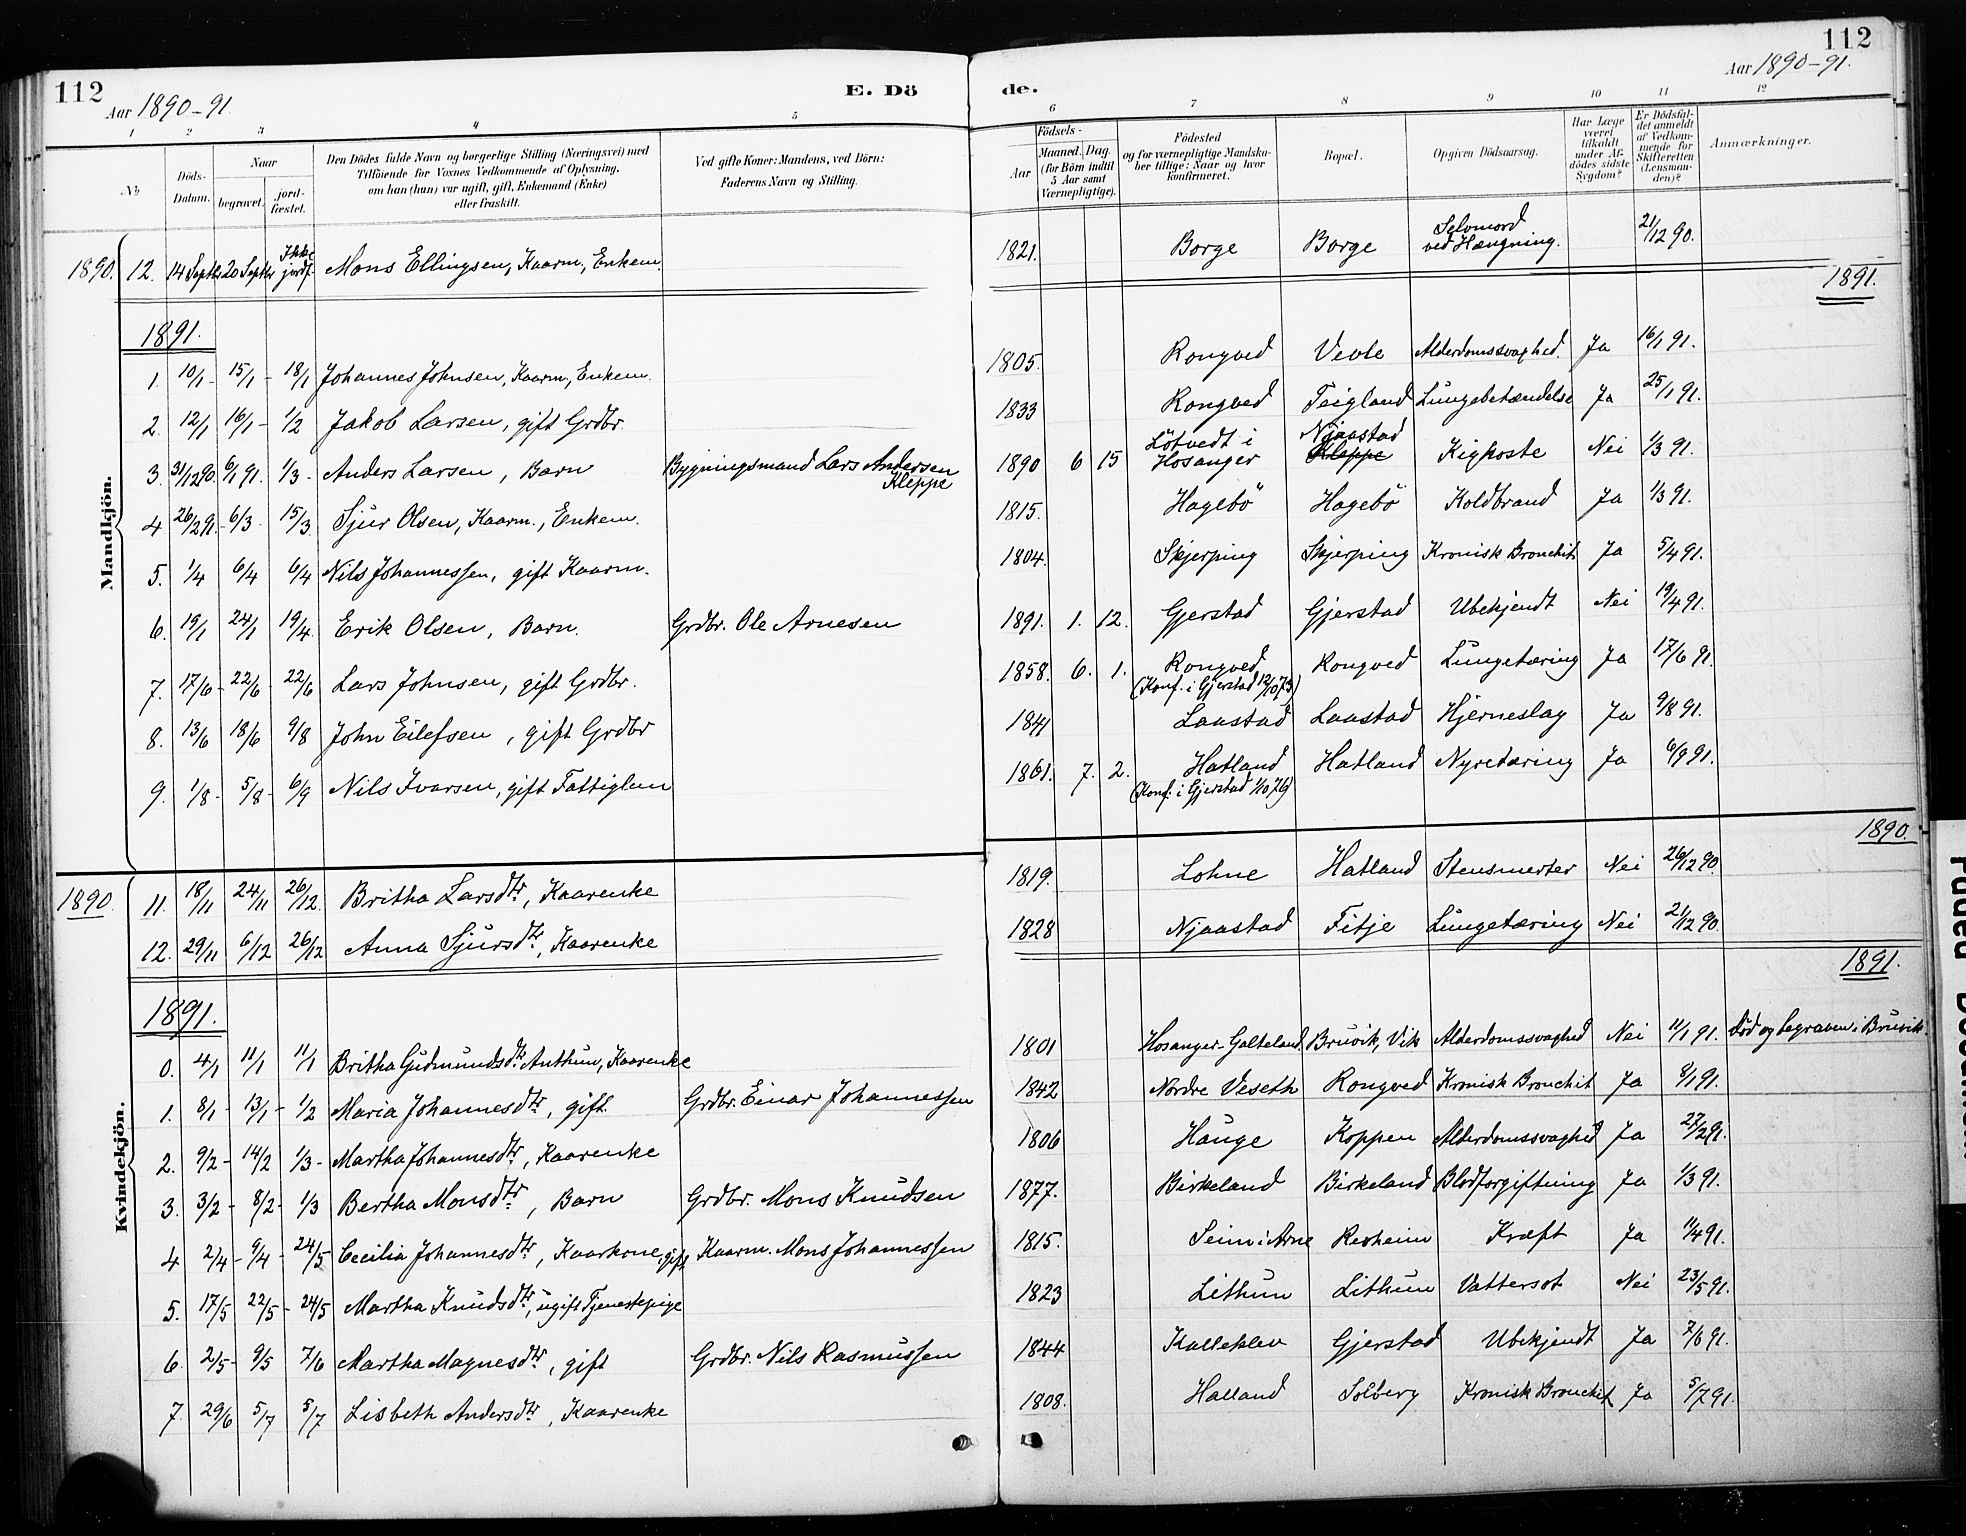 112
Aar 1890-91.
E. Dö
de.
112
Aar 1890-91.
1 2 3 4 5 6 7 8 9 10 11 12
No
Döds-Datum.
Naar
begravet.
jord-fæstet.
Den Dödes fulde Navn og borgerlige Stilling (Næringsvei) med
Tilföiende for Voxnes Vedkommende af Oplysning,
om han (hun) var ugift, gift, Enkemand (Enke)
eller fraskilt.
Ved gifte Koner: Mandens, ved Börn:
Faderens Navn og Stilling.
Födsels-
Aar
Maaned. Dag.
(for Börn indtil
5 Aar samt
Værnepligtige).
Födested
og for værnepligtige Mandska-
ber tillige: Naar og hvor
konfirmeret.
Bopæl.
Opgiven Dödsaarsag.
Har Læge
været
tilkaldt
under Af-
dödes sidste
Sygdom?
Er Dödsfal-
det anmeldt
af Vedkom-
mende for
Skifteretten
(Lensman-
den)?
Anmærkninger.
Mandkjön.
1890. 12. 14 Septbr 20 Septbr Ikke jordf. Mons Ellingsen, Kaarm., Enkem. 1821. Borge Borge Selvmord ved Hængning. 21/12 90.
1891.
1891.
1. 10/1 - 15/1 - 18/1 Johannes Johnsen, Kaarm., Enkem. 1805. Rongved Vevle Alderdomssvaghed. Ja 16/1 91.
2. 12/1 16/1 - 1/2 Jakob Larsen, gift Grdbr. 1833 Rongved Teigland Lungebetændelse Ja 25/1 91.
3. 31/12 90. 6/1 91. 1/3 - Anders Larsen, Barn Bygningsmand Lars Andersen Kleppe 1890 6 15 Lötvedt i Hosanger Njaastad Kleppe Kighoste Nei 1/3 91.
4 26/2 91. - 6/3 15/3 Sjur Olsen, Kaarm., Enkem. 1815. Hagebö Hagebö Koldbrand Ja 1/3 91.
5. 1/4 6/4 6/4 Nils Johannessen, gift Kaarm. 1804. Skjerping Skjerping Kronisk Bronchit Ja 5/4 91.
6. 19/1 24/1 19/4 Erik Olsen, Barn. Grdbr. Ole Arnesen 1891. 1. 12. Gjerstad Gjerstad Ubekjendt Nei 19/4 91.
7. 17/6 - 22/6 - 22/6 Lars Johnsen, gift Grdbr. 1858. 6. 1. Rongved (Konf. i Gjerstad 12/10 73) Rongved Lungetæring Ja 17/6 91.
8. 13/6 18/6 9/8 John Eilefsen, gift Grdbr 1841 Laastad Laastad Hjerneslag Ja 9/8 91.
9. 1/8 - 5/8 - 6/9 Nils Ivarsen, gift Fattiglem 1861. 7. 2. Hatland (Konf. i Gjerstad 1/10 76) Hatland Nyretæring Ja 6/9 91.
Kvindekjön.
1890.
1890. 11. 18/11 24/11 26/12 Britha Larsdtr, Kaarenke 1819. Lohne Hatland Stensmerter Nei 26/12 90.
12. 29/11 6/12 26/12 Anna Sjursdtr, Kaarenke 1828 Njaastad Fitje Lungetæring Nei 21/12 90.
1891.
1891.
0. 4/1 11/1 11/1 Britha Gudmundsdtr Anthun, Kaarenke 1801 Hosanger-Galteland Bruvik, Vik Alderdomssvaghed Nei 11/1 91. Död og begraven i Bruvik
1. 8/1 - 13/1 - 1/2 Maria Johannesdtr, gift. Grdbr. Einar Johannessen 1842 Nordre Veseth Rongved Kronisk Bronchit Ja 8/1 91.
2. 9/2 - 14/2 1/3 - Martha Johannesdtr, Kaarenke 1806 Hauge Koppen Alderdomssvaghed Ja 27/2 91.
3. 3/2 - 8/2 - 1/3 Bertha Monsdtr, Barn Grdbr. Mons Knudsen 1877. Birkeland Birkeland Blodforgiftning Ja 1/3 91.
4 2/4 - 9/4 - 24/5 Cecilia Johannesdtr, Kaarkone, gift Kaarm. Mons Johannessen 1815. Seim i Arne Reiheim Kræft Ja 11/4 91.
5. 17/5 22/5 - 24/5 Martha Knudsdtr, ugift Tjenestepige 1823 Lithun Lithun Vattersot Nei 23/5 91.
6. 2/5 - 9/5 7/6 Martha Magnesdtr, gift Grdbr. Nils Rasmussen 1844 Kalleklev Gjerstad Ubekjendt Ja 7/6 91.
7. 29/6 5/7 5/7 Lisbeth Andersdtr, Kaarenke 1808. Halland Solberg Kronisk Bronchit Ja 5/7 91.